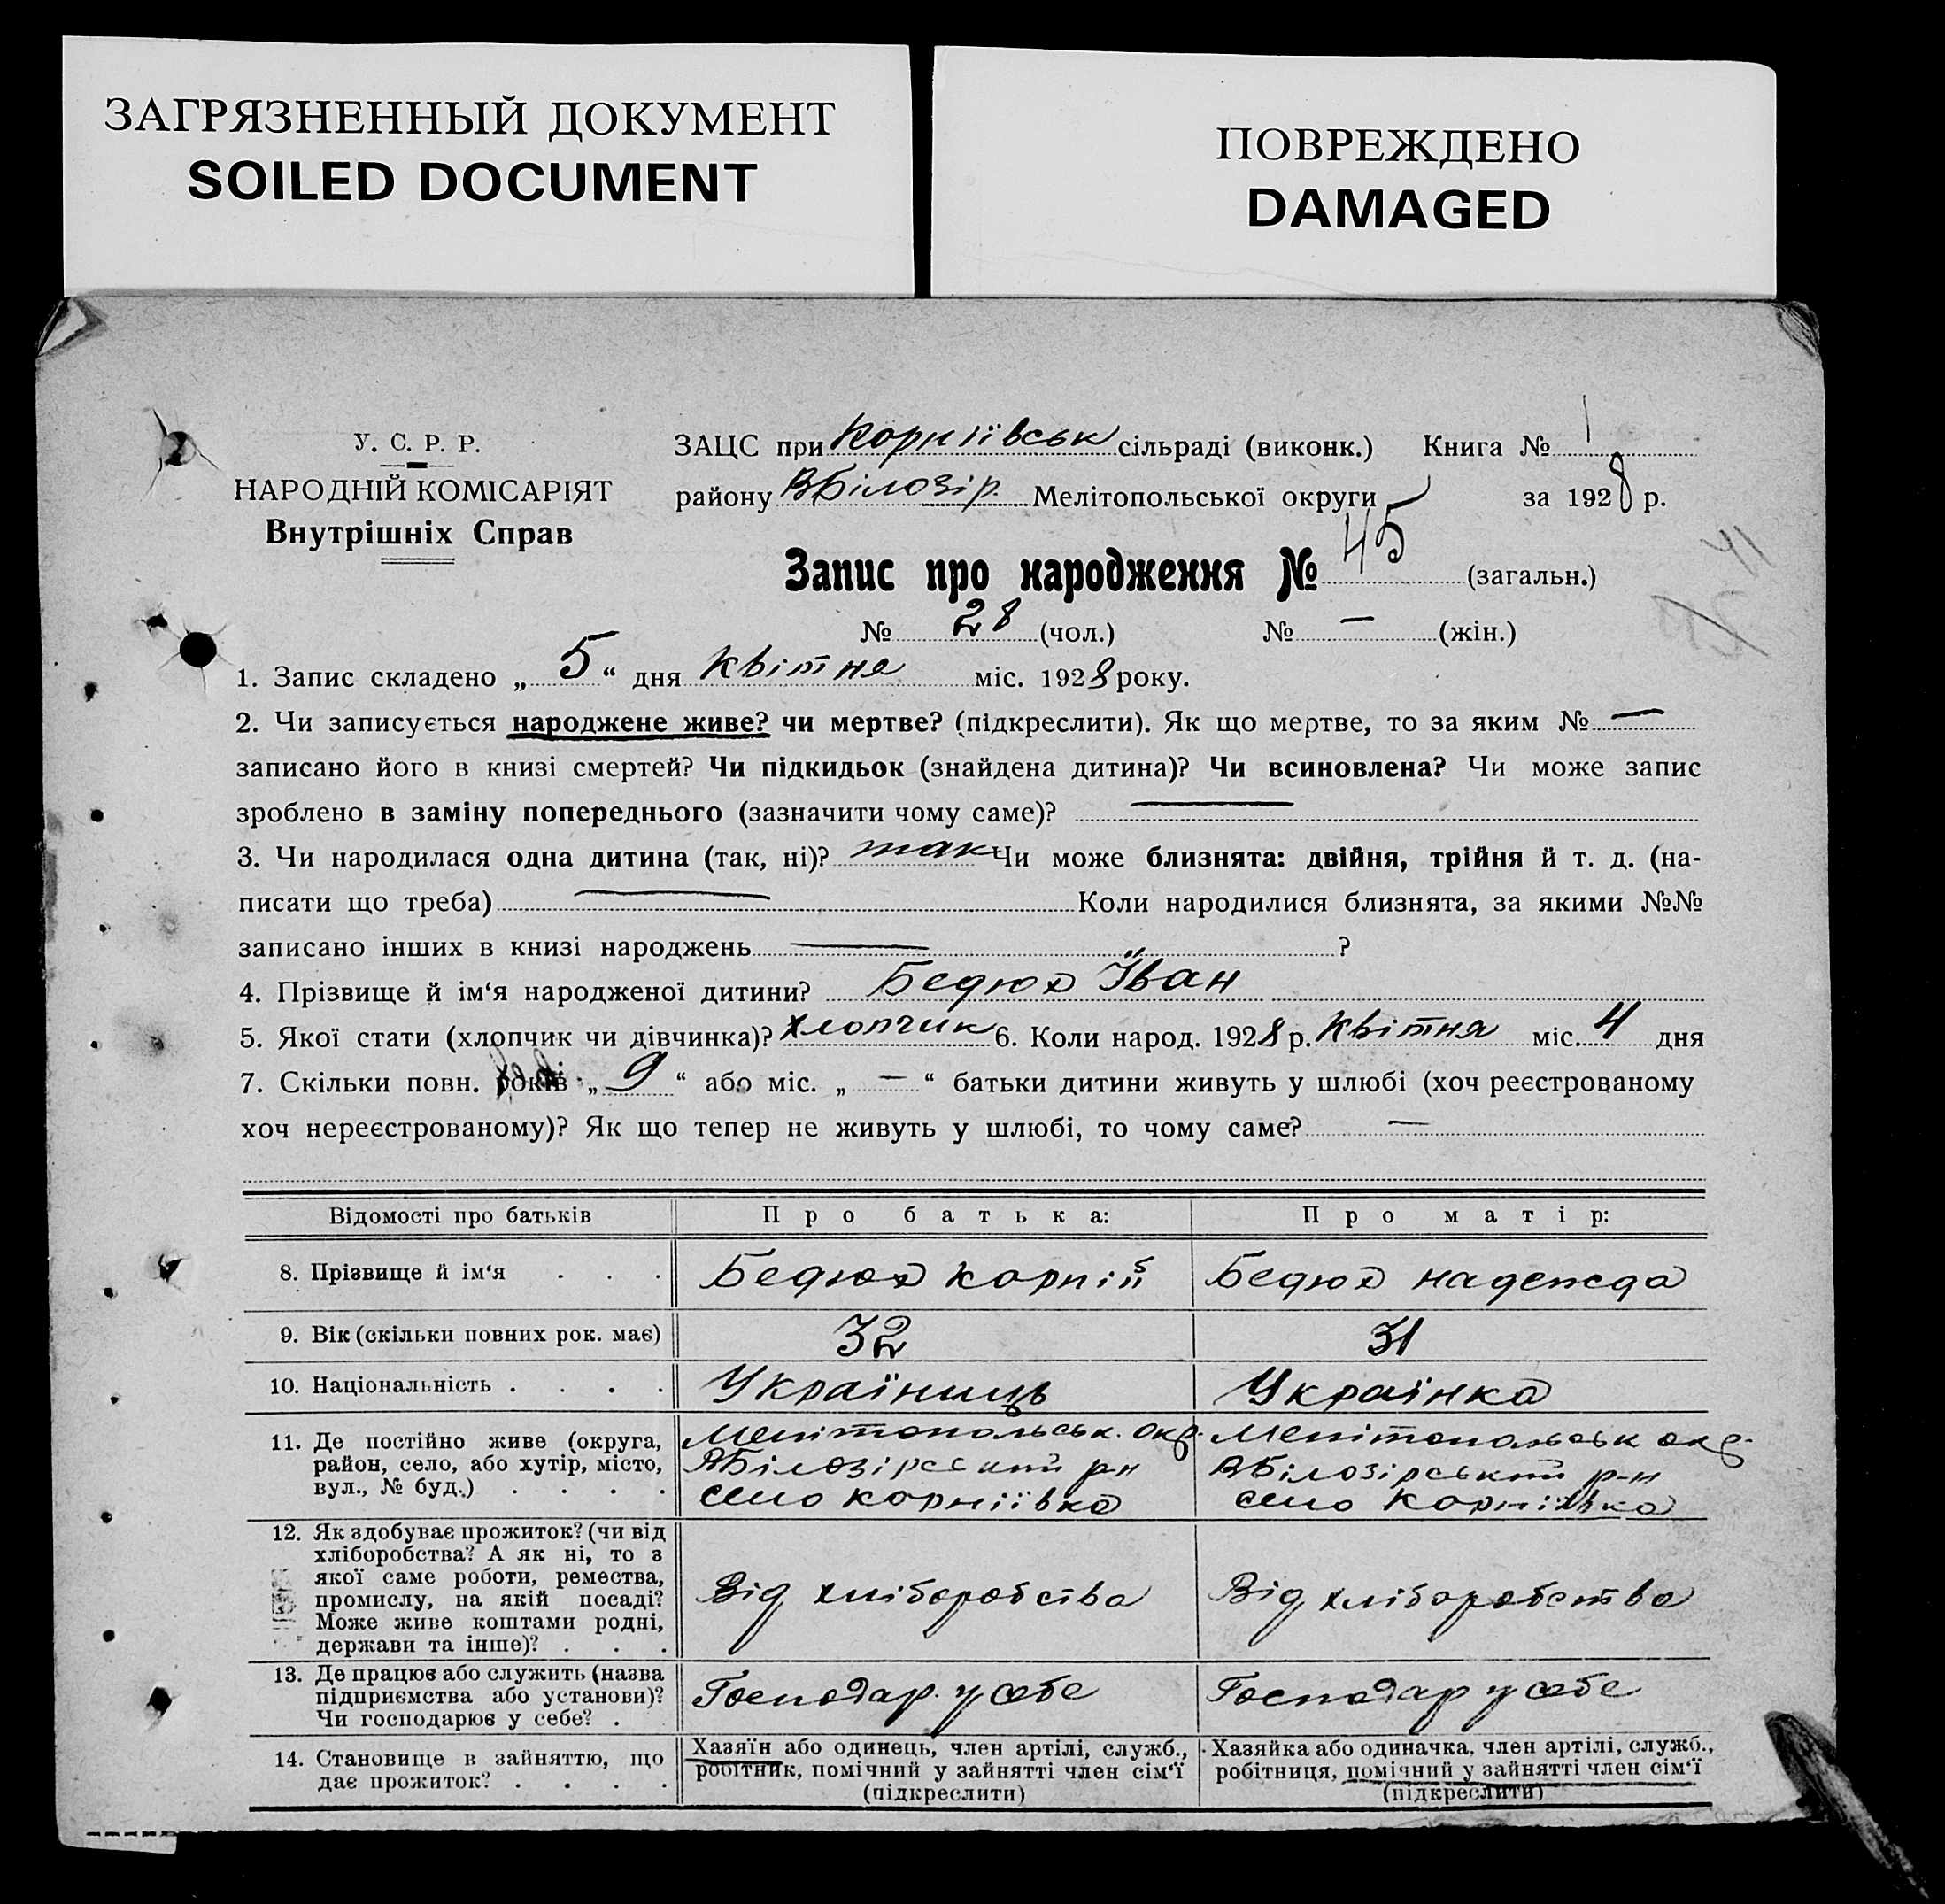 ЗАГРЯЗНЕННЫЙ ДОКУМЕНТ
SOILED DOCUMENT
ПОВРЕЖДЕНО
DAMAGED
У. С. Р. Р.
НАРОДНІЙ КОМІСАРІЯТ
Внутрішніх Справ
ЗАЦС при Корніївськ сільраді (виконк.) Книга № 1
району ВБілозір. Мелітопольської округи за 1928 р.
Запис про народження № 45 (загальн.)
№ 28 (чол.) № — (жін.)
1. Запис складено „ 5 “ дня Квітня міс. 1928 року.
2. Чи записується народжене живе? чи мертве? (підкреслити). Як що мертве, то за яким № —
записано його в книзі смертей? Чи підкидьок (знайдена дитина)? Чи всиновлена? Чи може запис
зроблено в заміну попереднього (зазначити чому саме)? —
3. Чи народилася одна дитина (так, ні)? так Чи може близнята: двійня, трійня й т. д. (на-
писати що треба) — Коли народилися близнята, за якими №№
записано інших в книзі народжень — ?
4. Прізвище й ім‘я народженої дитини? Бедюх Їван
5. Якої стати (хлопчик чи дівчинка)? хлопчик 6. Коли народ. 1928 р. Квітня міс. 4 дня
7. Скільки повн. років „ 9 “ або міс. „ — “ батьки дитини живуть у шлюбі (хоч реєстрованому
хоч нереєстрованому)? Як що тепер не живуть у шлюбі, то чому саме? —
Відомості про батьків Про батька: Про матір:
8. Прізвище й ім‘я . . . Бедюх Корній Бедюх Надежда
9. Вік (скільки повних рок. має) 32 31
10. Національність . . . . Україниць Українка
11. Де постійно живе (округа,
район, село, або хутір, місто,
вул., № буд.) . . . .
Мелітопольськ. окр.
ВБілозірський р-н
село Корніївка
Мелітопольськ окр.
ВБілозірський р-н
село Корніївка
12. Як здобуває прожиток? (чи від
хліборобства? А як ні, то з
якої саме роботи, ремества,
промислу, на якій посаді?
Може живе коштами родні,
держави та інше)? . . .
Від хліборобства
Від хліборобства
13. Де працює або служить (назва
підприємства або установи)?
Чи господарює у себе? .
Господар. у себе
Господар у себе
14. Становище в зайняттю, що
дає прожиток? . . . .
Хазяїн або одинець, член артілі, служб.,
робітник, помічний у зайнятті член сім‘ї
(підкреслити)
Хазяйка або одиначка, член артілі, служб.,
робітниця, помічний у зайнятті член сім‘ї
(підкреслити)